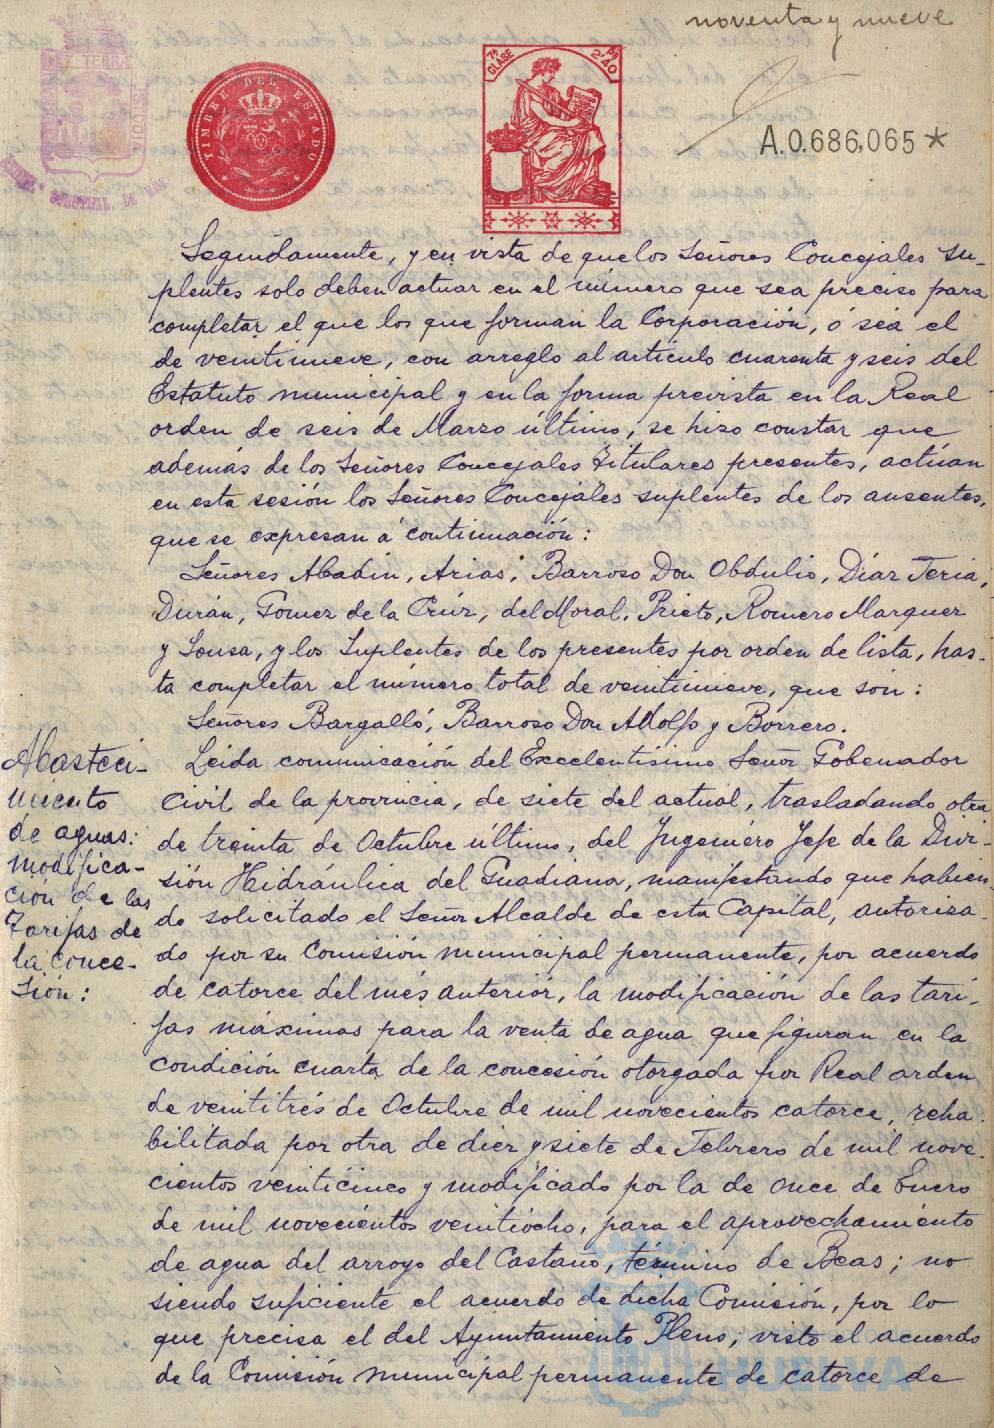 noventa y nueve
TIMBRE DEL ESTADO
7ª CLASE
2'40
A.0.686,065 *
Segundamente, y en vista de que los Señores Concejales su-
plentes solo deben actuar en el número que sea preciso para
completar el que los que forman la Corporación, ó sea el
de veintinueve, con arreglo al artículo cuarenta y seis del
Estatuto municipal y en la forma prevista en la Real
orden de seis de Marzo último, se hizo constar que
además de los Señores Concejales Titulares presentes, actúan
en esta sesión los Señores Concejales suplentes de los ausentes,
que se expresan á continuación:
Señores Abadin, Arias, Barroso Don Obdulio, Díaz Feria,
Durán, Gomez de la Crúz, del Moral, Prieto, Romero Marquez
y Sousa, y los Suplentes de los presentes por orden de lista, has-
ta completar el número total de veintinueve, que son:
Señores Bargalló, Barroso Don Adolfo y Borrero.
Abasteci-
miento
de aguas:
modifica-
ción de las
tarifas de
la conce-
sión:
Leida comunicación del Excelentísimo Señor Gobernador
Civil de la provincia, de siete del actual, trasladando otra
de treinta de Octubre último, del Ingeniero Jefe de la Divi-
sión Hidráulica del Guadiana, manifestando que habien-
do solicitado el Señor Alcalde de esta Capital, autoriza-
do por su Comisión municipal permanente, por acuerdo
de catorce del més anterior, la modificación de las tari-
fas máximas para la venta de agua que figuran en la
condición cuarta de la concesión otorgada por Real orden
de veintitrés de Octubre de mil novecientos catorce, reha-
bilitada por otra de diez y siete de Febrero de mil nove-
cientos veinticinco y modificado por la de once de Enero
de mil novecientos veintiocho, para el aprovechamiento
de agua del arroyo del Castaño, término de Beas; no
siendo suficiente el acuerdo de dicha Comisión, por lo
que precisa el del Ayuntamiento Pleno; visto el acuerdo
de la Comisión municipal permanente de catorce de
HUELVA